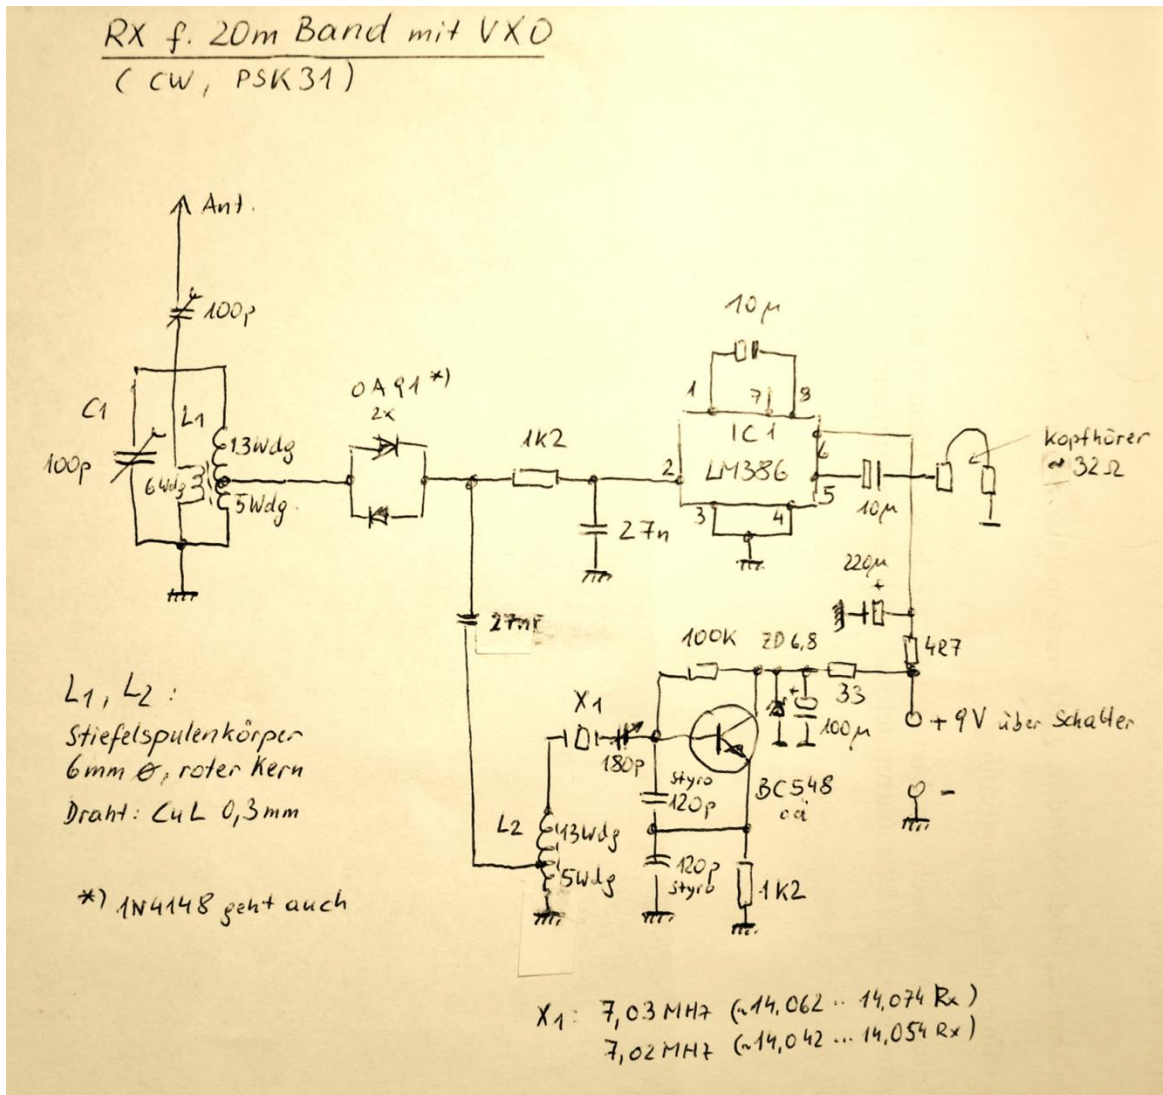 RX f. 20m Band mit VXO
(CW, PSK31)
Ant.
100p
C1
100p
L1
13Wdg
6Wdg
5Wdg.
OA91*)
2x
1k2
27n
10µ
1
7
8
IC1
LM386
2
6
5
3
4
10µ
Kopfhörer
≈ 32Ω
220µ
+
4R7
27nF
100K
ZD6,8
33
+
100µ
+9V über Schalter
-
X1
180p
Styro
120p
BC548
oä
120p
Styro
1k2
L2
13Wdg
5Wdg
L1, L2:
Stiefelspulenkörper
6mm ø, roter Kern
Draht: CuL 0,3mm
*) 1N4148 geht auch
X1: 7,03MHz (~14,062 .. 14,074 Rx)
7,02MHz (~14,042 ... 14,054 Rx)